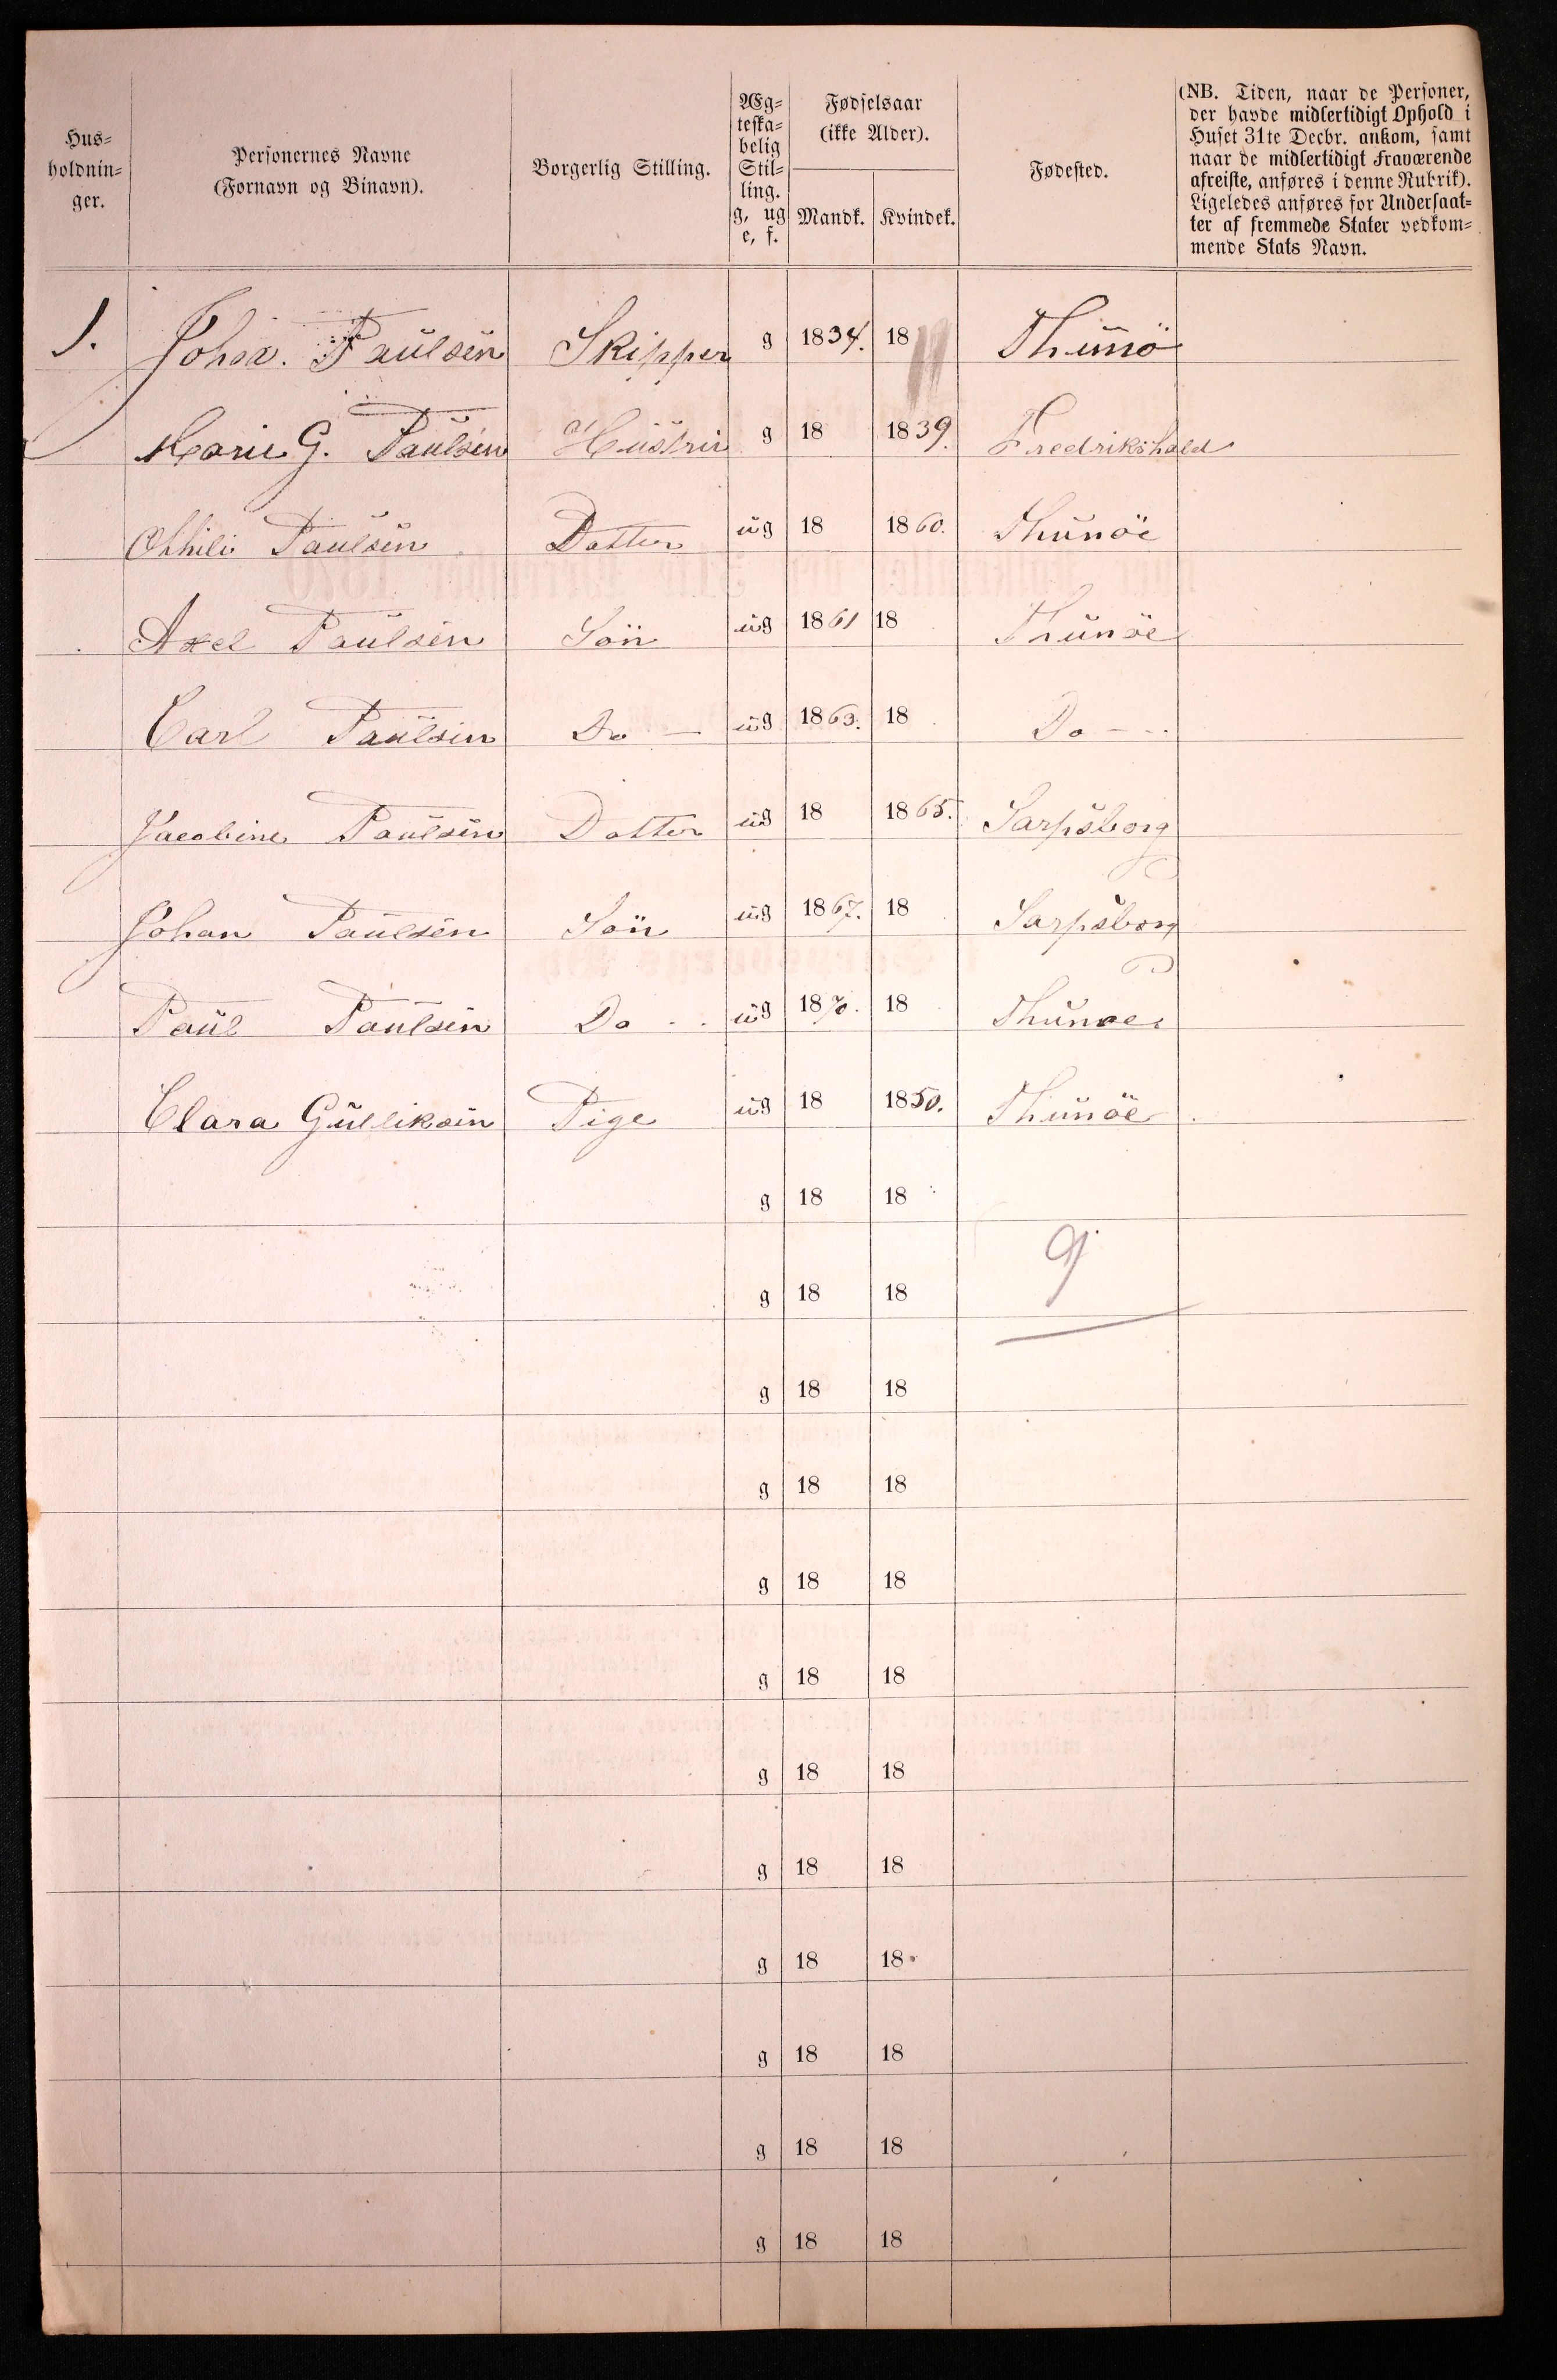 Hus-
holdnin-
ger.
Personernes Navne
(Fornavn og Binavn).
Borgerlig Stilling.
Æg-
teska-
belig
Stil-
ling.
g, ug
e, f.
Fødselsaar
(ikke Alder).
Mandk. Kvindek.
Fødested.
(NB. Tiden, naar de Personer,
der havde midlertidigt Ophold i
Huset 31te Decbr. ankom, samt
naar de midlertidigt Fraværende
afreiste, anføres i denne Rubrik).
Ligeledes anføres for Undersaat-
ter af fremmede Stater vedkom-
mende Stats Navn.
1. Johan. Paulsen Skipper g 1834. 18 Thunö
Marie G. Paulsen Hustru g 18 1839. Fredrikshald
Othili Paulsen Datter ug 18 1860. Thunöe
Axel Paulsen Sön ug 1861 18 Thunöe
Carl Paulsen Do — ug 1863. 18 Do — -
Jacobine Paulsen Datter ug 18 1865. Sarpsborg
Johan Paulsen Sön ug 1867. 18 Sarpsborg
Paul Paulsen Do ug 1870. 18 Thunoe
Clara Gulliksen Pige ug 18 1850. Thunöe
g 18 18
g 18 18 9
g 18 18
g 18 18
g 18 18
g 18 18
g 18 18
g 18 18
g 18 18
g 18 18
g 18 18
g 18 18